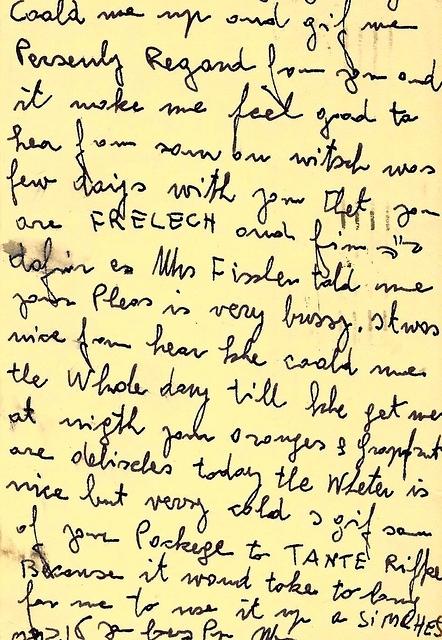 Coald me up and gif me
Persenly Regard from you and
it make me feel good to
hear from som on witsch was
few days with you that you
are FRELECH and from
Mhs Fisslen told me
your Pleas is very bussy. it was
nice from hear she coald me
the Whole day till she get me
at nigth your oranges & grapfrut
are delisches today the Wheter is
nice but verry cold s gif som
of your Pockege to TANTE Riffke
Because it woud take to long
for me to use it up a SIMCHES